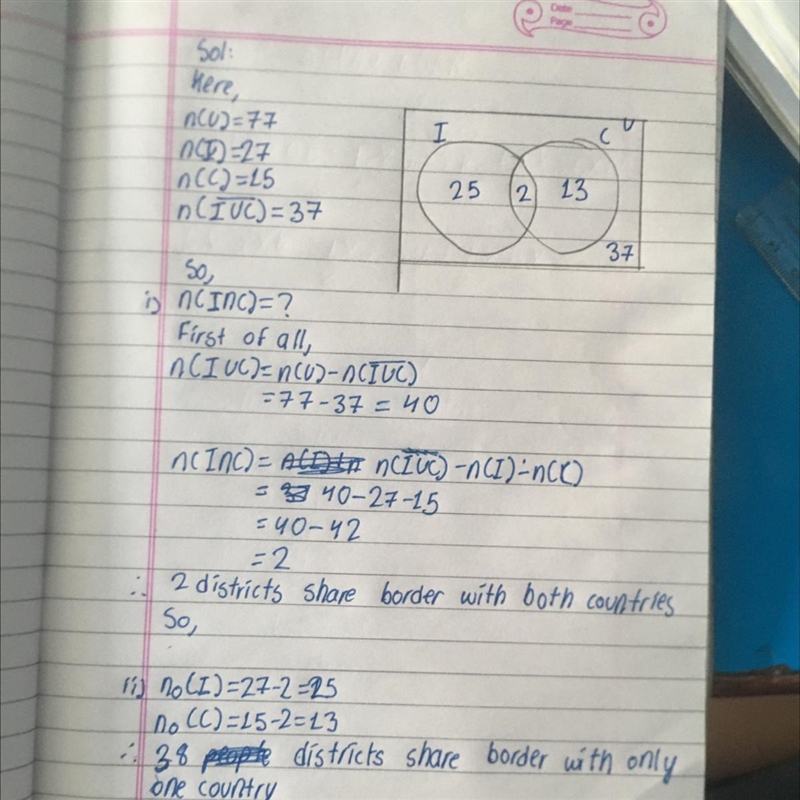 Date
Page
Sol:
Here,
n(U)=77
n(I)=27
n(C)=15
n(\overline{IUC})=37
I C U
25 2 13
37
So,
i) n(InC)=?
First of all,
n(IUC)=n(U)-n(\overline{IUC})
=77-37=40
n(InC)= n(\overline{IUC})-n(I)-n(C)
= 40-27-15
=40-42
=2
∴ 2 districts share border with both countries
So,
ii) no(I)=27-2=25
no(C)=15-2=13
∴ 38 people districts share border with only
one country